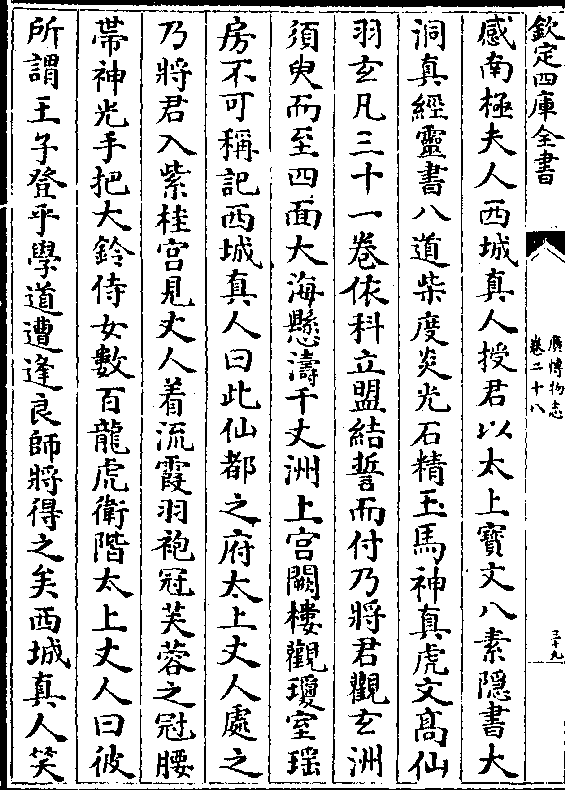 欽定四庫全書
廣博物志
卷二十八
三十九
感南極夫人西城真人授君以太上寶文八素隠書大
洞真經靈書八道柴度炎光石精玉馬神真虎文髙仙
羽玄凡三十一卷依科立盟結誓而付乃將君觀玄洲
須臾而至四面大海懸濤千丈洲上宫闕樓觀瓊室瑶
房不可稱記西城真人曰此仙都之府太上丈人處之
乃將君入紫桂宫見丈人着流霞羽袍冠芙蓉之冠腰
帶神光手把大鈴侍女數百龍虎衛階太上丈人曰彼
所謂王子登乎學道遭逢良師將得之矣西城真人笑